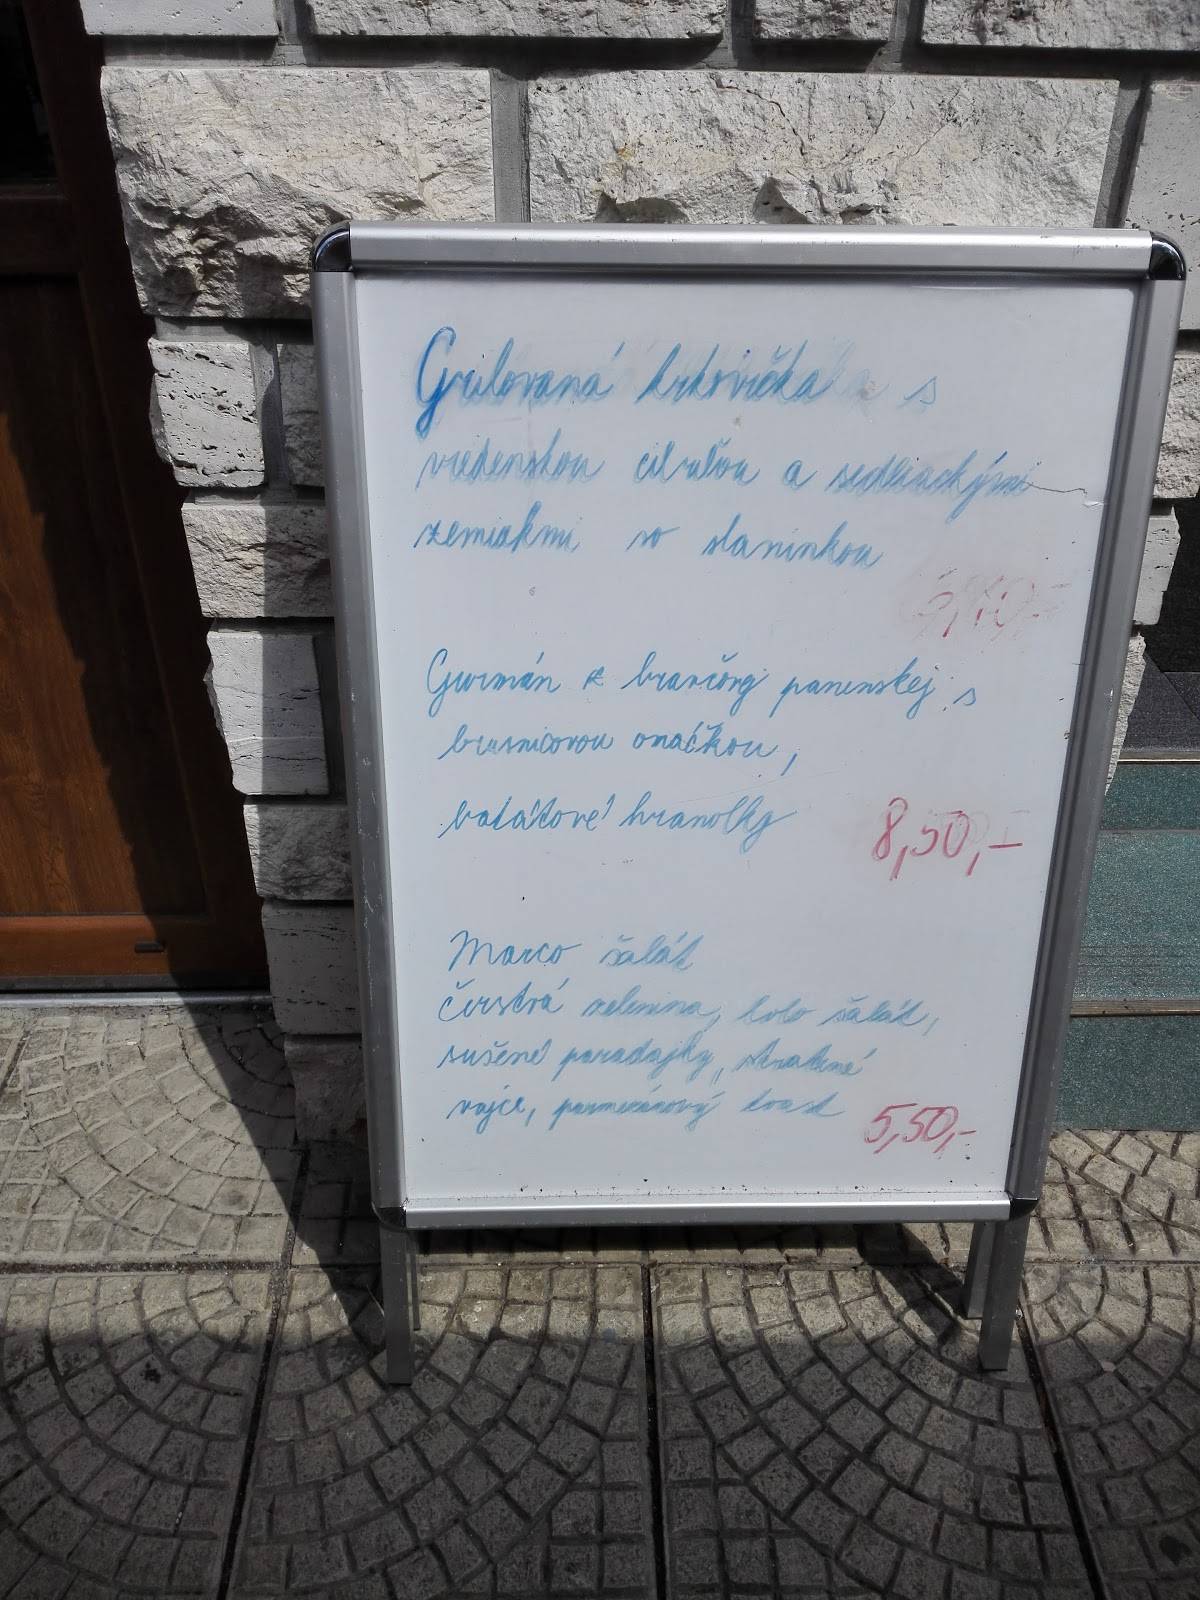 Grilovaná krkovička s
viedenskou cibuľou a sedliackými
zemiakmi so slaninkou
Gurmán z bravčovej panenskej s
brusnicovou omáčkou,
batátové hranolky
8,50,-
Marco šalát
Čerstvá zelenina, lolo šalát,
sušené paradajky, stratené
vajce, parmezánový toast
5,50,-